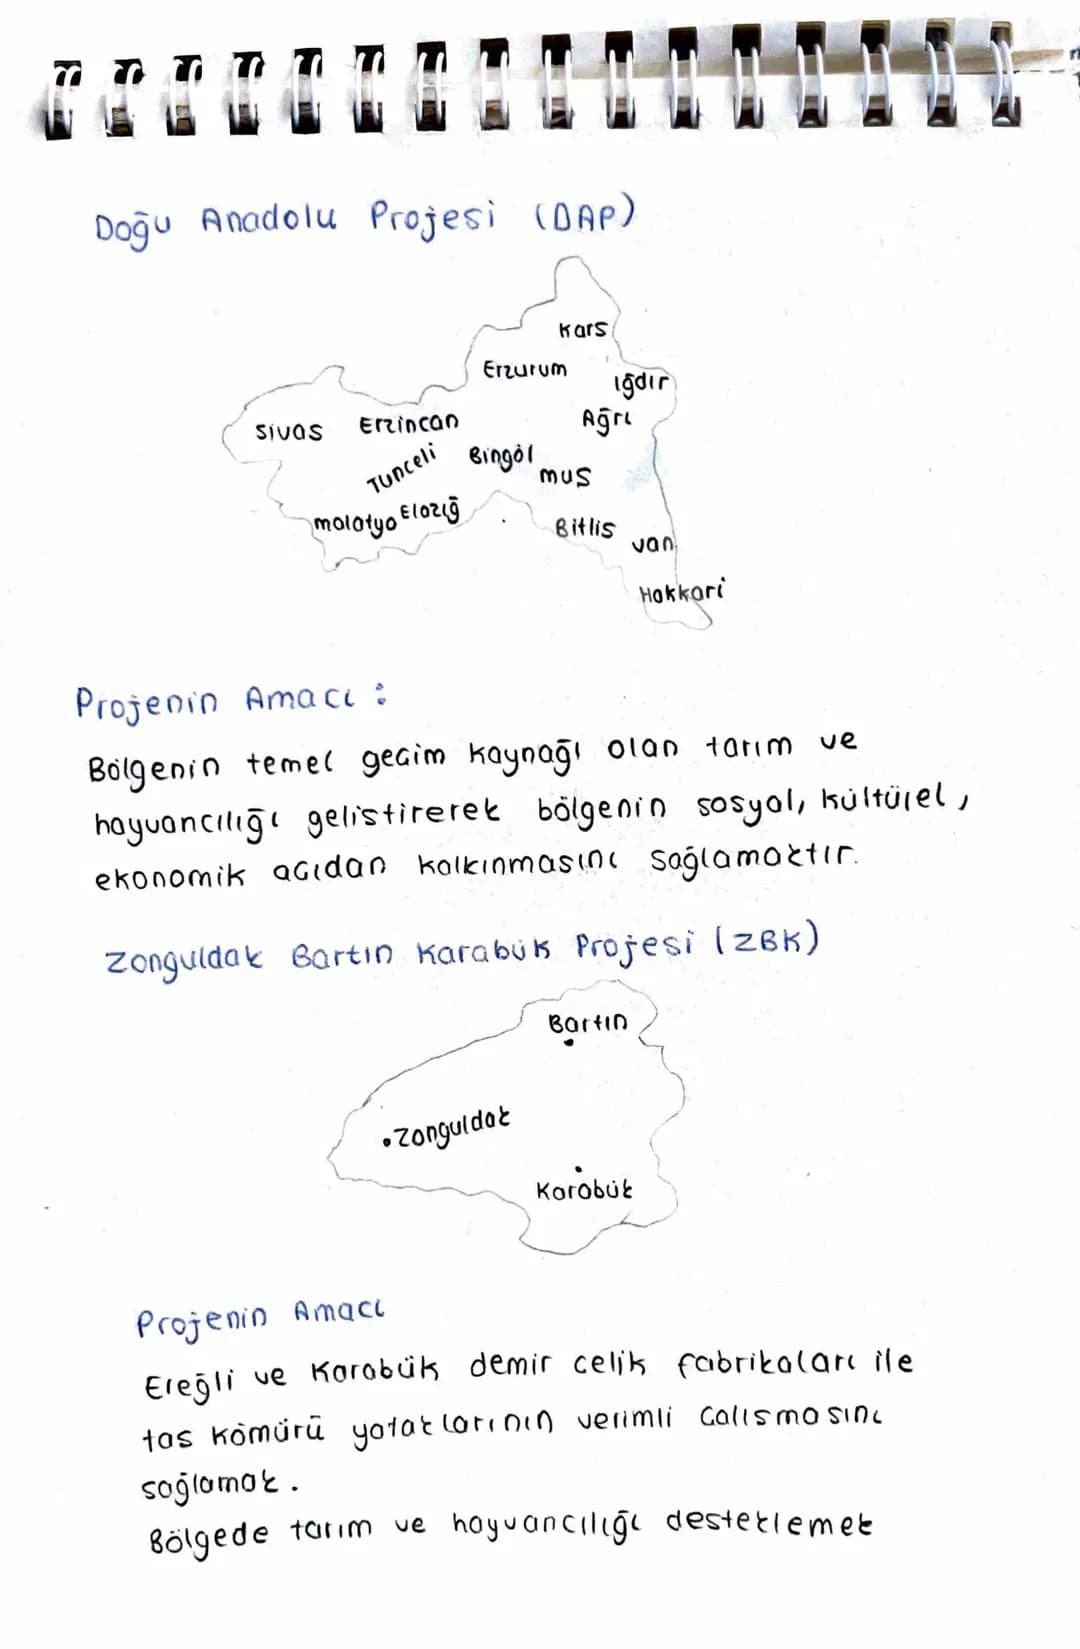 Doğu Anadolu Projesi (DAP)
Kars
Erzurum
Iğdır
Ağrı
Sivas Erzincan
Tunceli Bingöl
mus
malatya Elazığ
Bitlis
van
Hakkari
Projenin Amacı :
Bölgenin temel gecim kaynağı olan tarım ve
hayvancılığı gelistirerek bölgenin sosyal, kültürel,
ekonomik acıdan kalkınmasını sağlamaktır.
Zonguldak Bartın Karabük Projesi (ZBK)
Bartın
Zonguldak
Karabük
Projenin Amacı
Ereğli ve Karabük demir celik fabrikaları ile
tas kömürü yataklarının verimli calısmasını
sağlamak.
Bölgede tarım ve hayvancılığı desteklemek